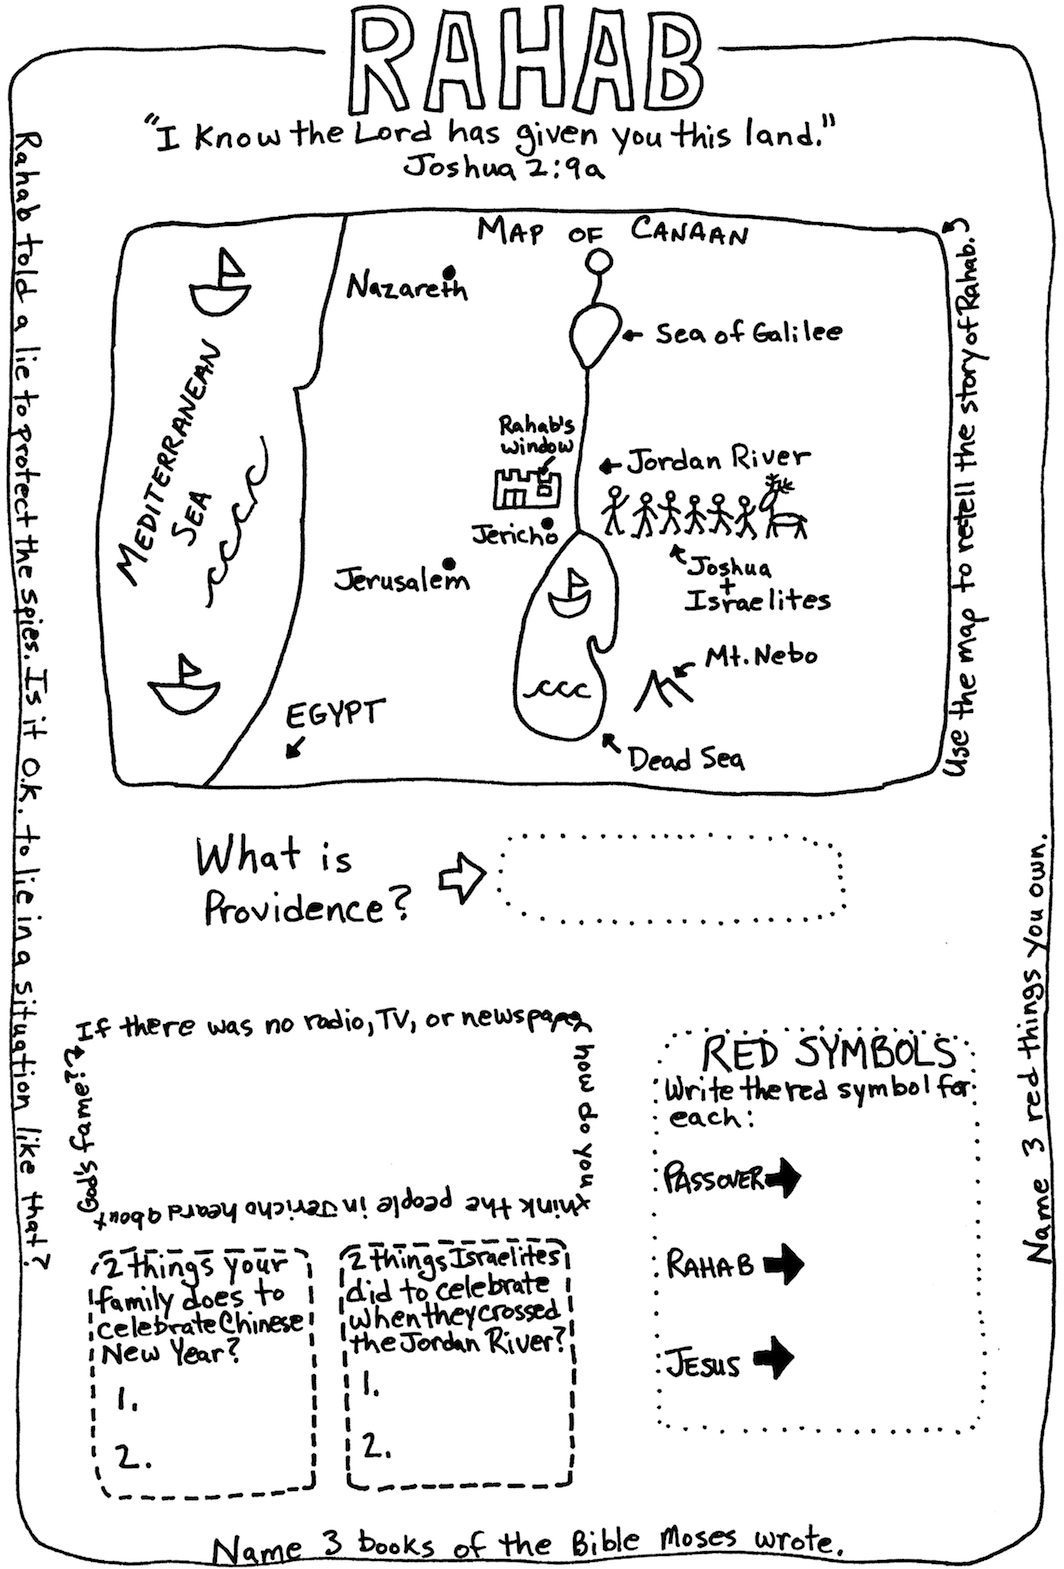 RAHAB
"I know the Lord has given you this land."
Joshua 2:9a
Rahab told a lie to protect the spies. Is it O.K. to lie in a situation like that?
MAP OF CANAAN
Nazareth
Sea of Galilee
MEDITERRANEAN
SEA
Rahab's
window
Jordan River
Jericho
Joshua
+
Israelites
Jerusalem
Mt. Nebo
EGYPT
Dead Sea
Use the map to retell the story of Rahab.
What is
Providence?
If there was no radio, TV, or newspaper
how do you
think the people in Jericho heard about
God's fame?
RED SYMBOLS
Write the red symbol for
each:
PASSOVER
RAHAB
JESUS
Name 3 red things you own.
2 things your
family does to
celebrate Chinese
New Year?
1.
2.
2 things Israelites
did to celebrate
when they crossed
the Jordan River?
1.
2.
Name 3 books of the Bible Moses wrote.